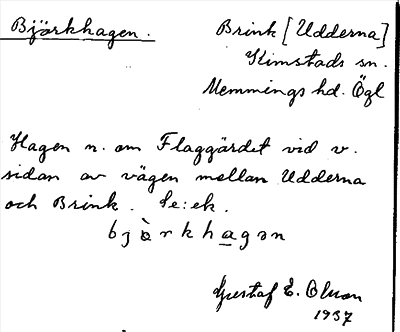 Björkhagen. Brink [Udderna]
Kimstads sn.
Memmings hd. Ögl
Hagen n. om Flaggärdet vid v.
sidan av vägen mellan Udderna
och Brink. Le: ek.
bjò̤rkhagən
Gustaf E. Olsson
1937